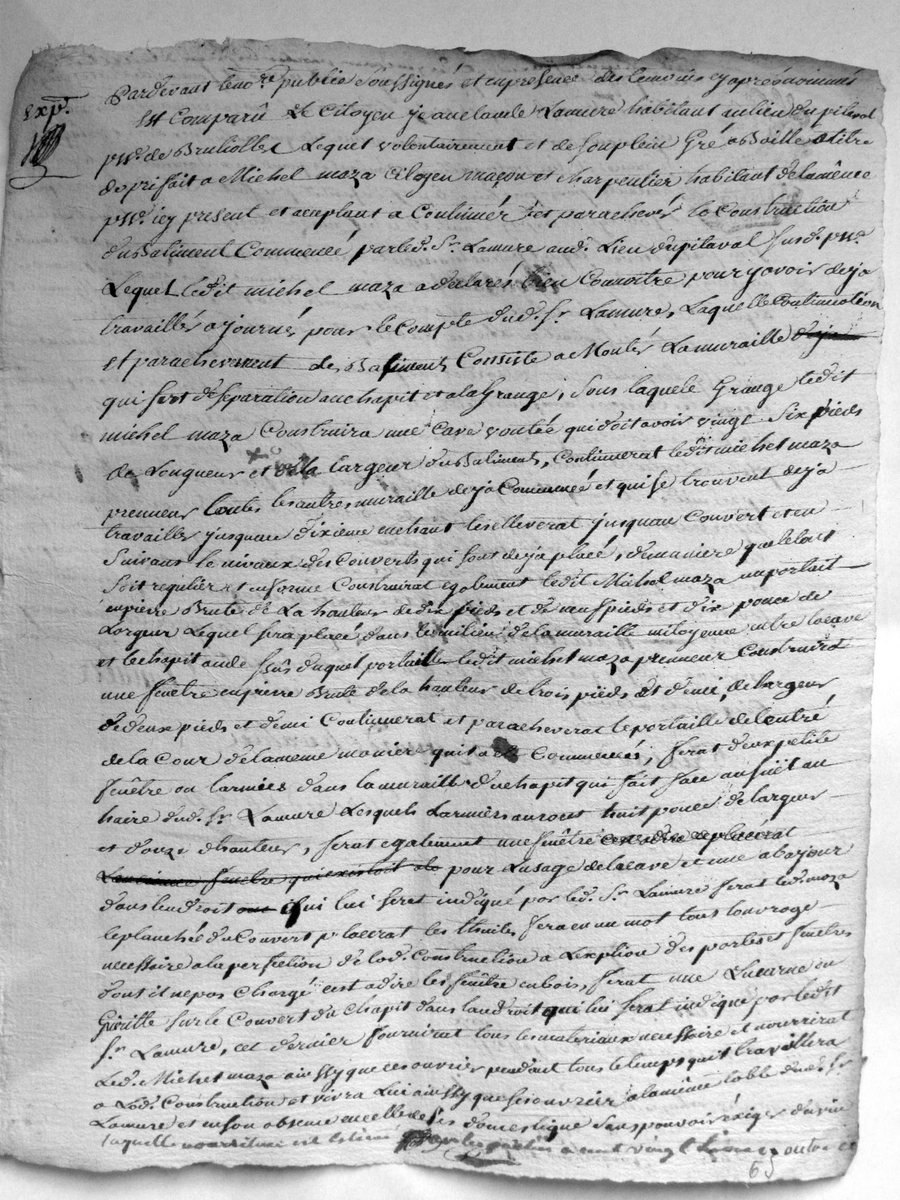 Expd.
Pardevant le nore. public Soussignés et en presence des temoins cy apres nommés
Est Comparû Le Citoyen jeanclaude Lamure habitant au lieu du pilaval
psse. de Brulliolle Lequel volontairement et de son plein Gré a Baille a titre
de prifait a Michel maza Citoyen maçon et charpentier habitant de la même
psse. icy present et aceptant a Continuer et parachever la Construction
du Batiment Commencé par led. Sr. Lamure aud. Lieu du pilaval susd. psse.
Lequel ledit michel maza a declarés bien Connoitre pour y avoir deja
travaillés a journé pour le Compte dud. Sr. Lamure, Laquelle Continuation
et parachevement de Batiment Consiste a Monter La muraille deja
qui sert de separation au chapit et a la Grange, sous laquele Grange ledit
michel maza Construira une Cave voutée qui doit avoir vingt Six pieds
de Longueur et de la largeur du Batiment, Continuerat ledit michel maza
preneur toutes les autres muraille deja Commencé et qui se trouvent deja
travaillés jusquau dixieme les ellevera jusquau Couvert et en
Suivant le nivaux des Couverts qui sont deja placé, de maniere que le tout
Soit regulier et uniforme Construirat egalement ledit Michel maza un portail
en pierre Brute de La hauteur de dix pieds et de neuf pieds et dix pouce de
Largeur Lequel sera placé dans le milieu de la muraille mitoyenne entre la cave
et le chapit au de ssus duquel portaille ledit michel maza preneur Construira
une fenêtre en pierre Brute de la hauteur de trois pieds et demi, de largeur
de deux pieds et demi Continuerat et paracheverat le portaille de lentré
de la Cour de la meme manier quil a Commencés, ferat deux petite
fenêtre ou larmiés dans la muraille du chapit qui fait face au
haire dud. Sr. Lamure Lesquels Larmiers auront huit pouce de largeur
et douze dhauteur, ferat egalement une fenêtre cest adire replacerat
Lancienne fenêtre qui existoit pour Lusage de la cave et une abajour
dans lendroit qui lui seret indiqué par led. Sr. Lamure ferat led. maza
le planché du Couvert placerat les thuiles fera en un mot tous louvrage
necessaire a la perfection de lad. Construction a lexption des portes et fenêtres
dont il ne pas Chargé cest adire les fenêtre en bois, ferat une Lucarne ou
sur le Couvert du Chapit dans landroit qui lui serat indiqué par ledit
Sr. Lamure, cet dernier fournirat tous les materiaux necessaire et nourrirat
led. Michel maza ainssy que ces ouvrier pendant tous le temps quil travaillera
a lad. Construction et vivra Lui ainssy que ses ouvrier a la même table dud. Sr.
Lamure et en son absence en celle de ses domestique Sans pouvoir exiger du vin
laquelle nourriture est Estimé par les parties a cent vingt Livres outre ce
65